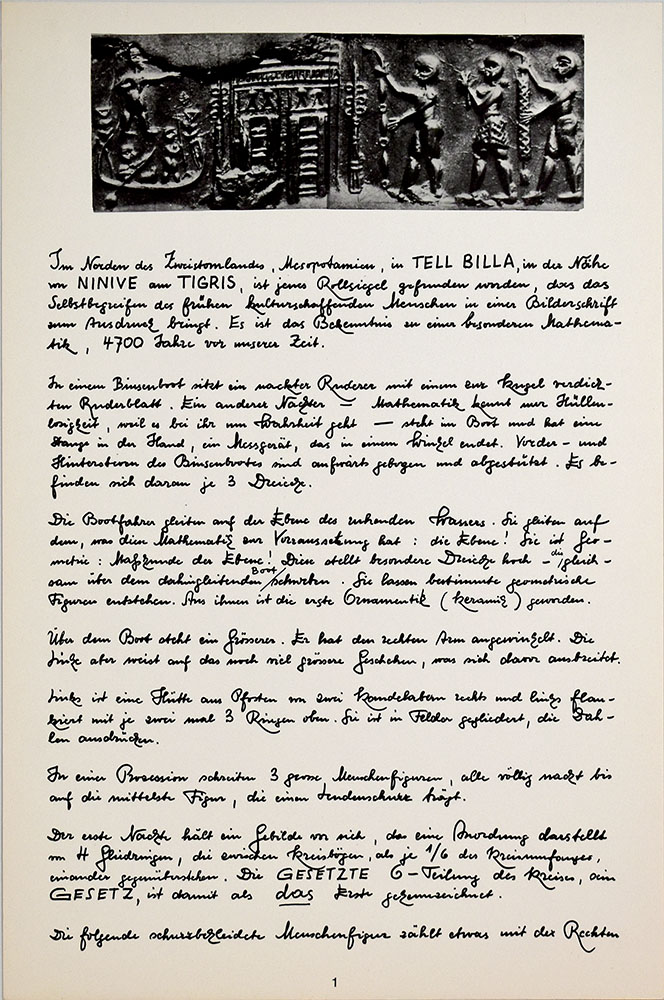 Im Norden des Zweistromlandes, Mesopotamien, in TELL BILLA, in der Nähe
von NINIVE am TIGRIS, ist jenes Rollsiegel gefunden worden, das das
Selbstbegreifen des frühen kulturschaffenden Menschen in einer Bilderschrift
zum Ausdruck bringt. Es ist das Bekenntnis zu einer besonderen Mathema-
tik, 4700 Jahre vor unserer Zeit.
In einem Binsenboot sitzt ein nackter Ruderer mit einem zur Kugel verdick-
ten Ruderblatt. Ein anderer Nackter — Mathematik kennt nur Hüllen-
losigkeit, weil es bei ihr um Wahrheit geht — steht im Boot und hat eine
Stange in der Hand, ein Messgerät, das in einem Winkel endet. Vorder- und
Hintersteven des Binsenbootes sind aufwärts gebogen und abgestützt. Es be-
finden sich daran je 3 Dreiecke.
Die Bootfahrer gleiten auf der Ebene des ruhenden Wassers. Sie gleiten auf
dem, was diese Mathematik zur Voraussetzung hat: die Ebene! Sie ist Geo-
metrie: Maßkunde der Ebene! Diese stellt besondere Dreiecke hoch — die gleich-
sam über dem dahingleitenden Boot schweben. Sie lassen bestimmte geometrische
Figuren entstehen. Aus ihnen ist die erste Ornamentik (Keramik) geworden.
Über dem Boot steht ein Grösserer. Er hat den rechten Arm angewinkelt. Die
Linke aber weist auf das noch viel grössere Geschehen, was sich davor ausbreitet.
Links ist eine Hütte aus Pfosten von zwei Kandelabern rechts und links flan-
kiert mit je zwei mal 3 Ringen oben. Sie ist in Felder gegliedert, die Zah-
len ausdrücken.
In einer Prozession schreiten 3 grosse Menschenfiguren, alle völlig nackt bis
auf die mittelste Figur, die einen Lendenschurz trägt.
Der erste Nackte hält ein Gebilde vor sich, das eine Anordnung darstellt
von 4 Gliedringen, die zwischen Kreisbögen, als je 1/6 des Kreisumfanges,
einander gegenüberstehen. Die GESETZTE 6-Teilung des Kreises, ein
GESETZ, ist damit als das Erste gekennzeichnet.
Die folgende schurzbekleidete Menschenfigur zählt etwas mit der Rechten
1